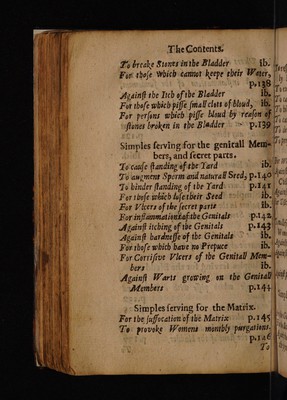 The Contents.
To breake Stones in the Bladder ib.
For those which cannot keepe their Water,
p.138
Against the Itch of the Bladder ib.
For those which pisse small clots of bloud, ib.
For persons which pisse bloud by reason of
stones broken in the Bladder p.139
Simples serving for the genitall Mem-
bers, and secret parts.
To cause standing of the Yard ib.
To augment Sperm and naturall Seed, p.140
To hinder standing of the Yard p.141
For those which lose their Seed ib.
For Vlcers of the secret parts ib.
For inflammations of the Genitals p.142
Against itching of the Genitals p.143
Against hardnesse of the Genitals ib.
For those which have no Prepuce ib.
For Corrosive Vlcers of the Genitall Mem-
bers ib.
Against Warts growing on the Genitall
Members p.144
Simples serving for the Matrix.
For the suffocation of the Matrix p.145
To provoke Womens monthly purgations.
p.146
To